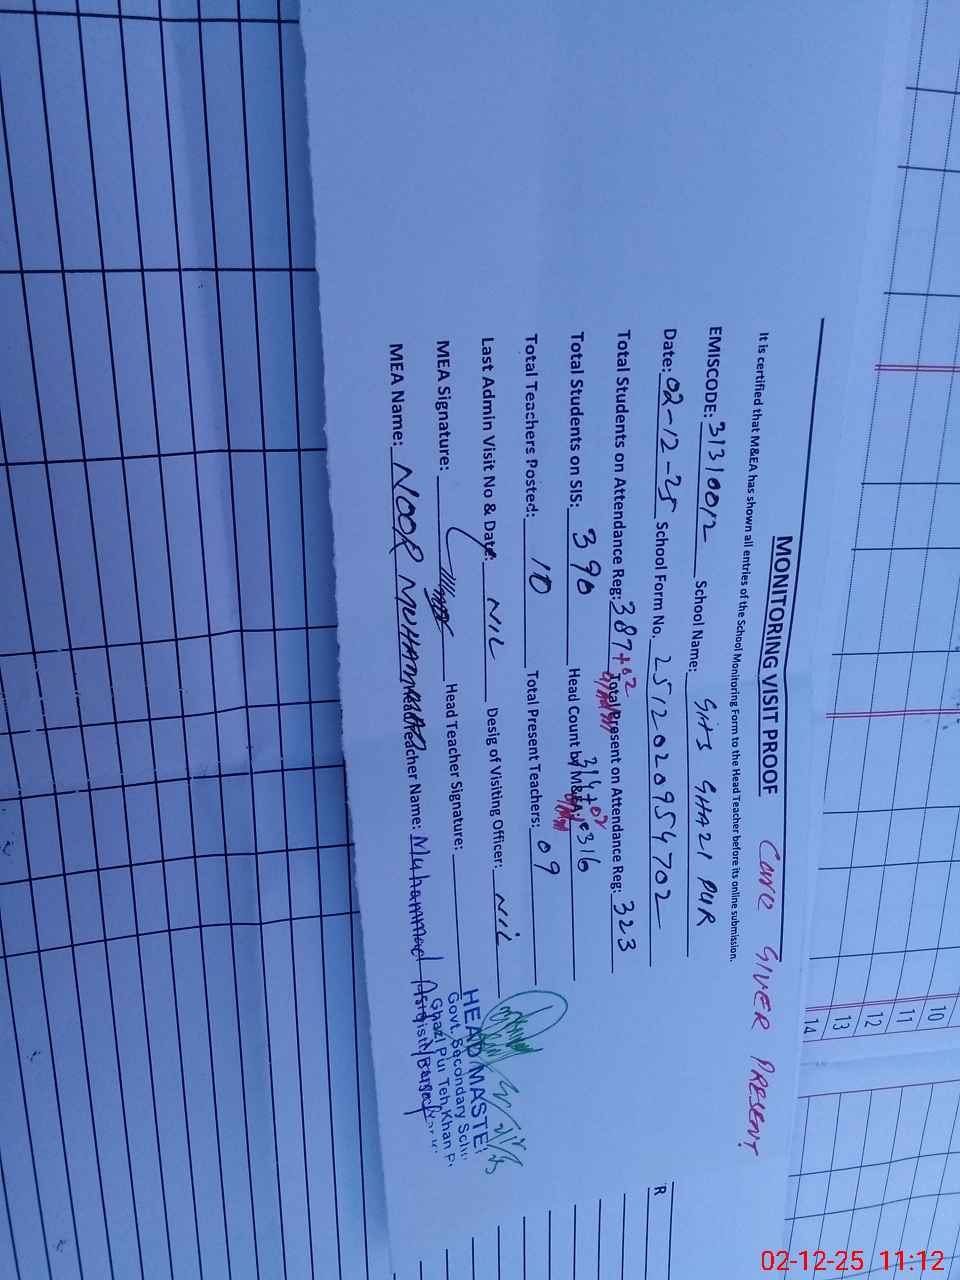 MONITORING VISIT PROOF Care GIVER PRESENT
It is certified that M&EA has shown all entries of the School Monitoring Form to the Head Teacher before its online submission.
EMISCODE: 31310012 School Name: GHS GHAZI PUR
Date: 02-12-25 School Form No. 2512020954702
Total Students on Attendance Reg: 387+02 Total Present on Attendance Reg: 323
Total Students on SIS: 390 Head Count by M&EA: 314+02 = 316
Total Teachers Posted: 10 Total Present Teachers: 09
Last Admin Visit No & Date: NIL Desig of Visiting Officer: NIL
MEA Signature: Head Teacher Signature:
MEA Name: NOOR MUHAMMAD Head Teacher Name: Muhammad
HEAD MASTE
Govt. Secondary Sch
Ghazi Pur Teh, Khan P
R
10
11
12
13
14
02-12-25 11:12